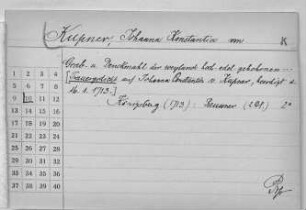 Küpner, Johanna Konstantia von K
Grab- u. Denkmahl der weyland hoch edel gebohrnen
[Trauergedicht auf Johanna Constantia v. Küpner, beerdigt d.
16. 1. 1713.]
Königsberg (1713): Reusner (4 Bl.) 2°
1 2 3 4
5 6 7 8
9 10 11 12
13 14 15 16
17 18 19 20
21 22 23 24
25 26 27 28
29 30 31 32
33 34 35 36
37 38 39 40